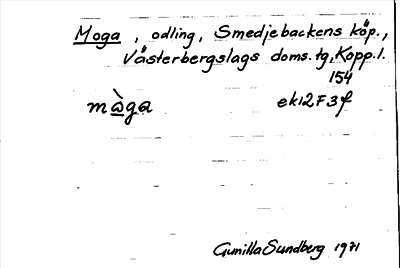 Moga, odling, Smedjebackens köp.,
Västerbergslags doms.tg, Kopp.l.
154
mò̲ga ek12F3f
Gunilla Sundberg 1971